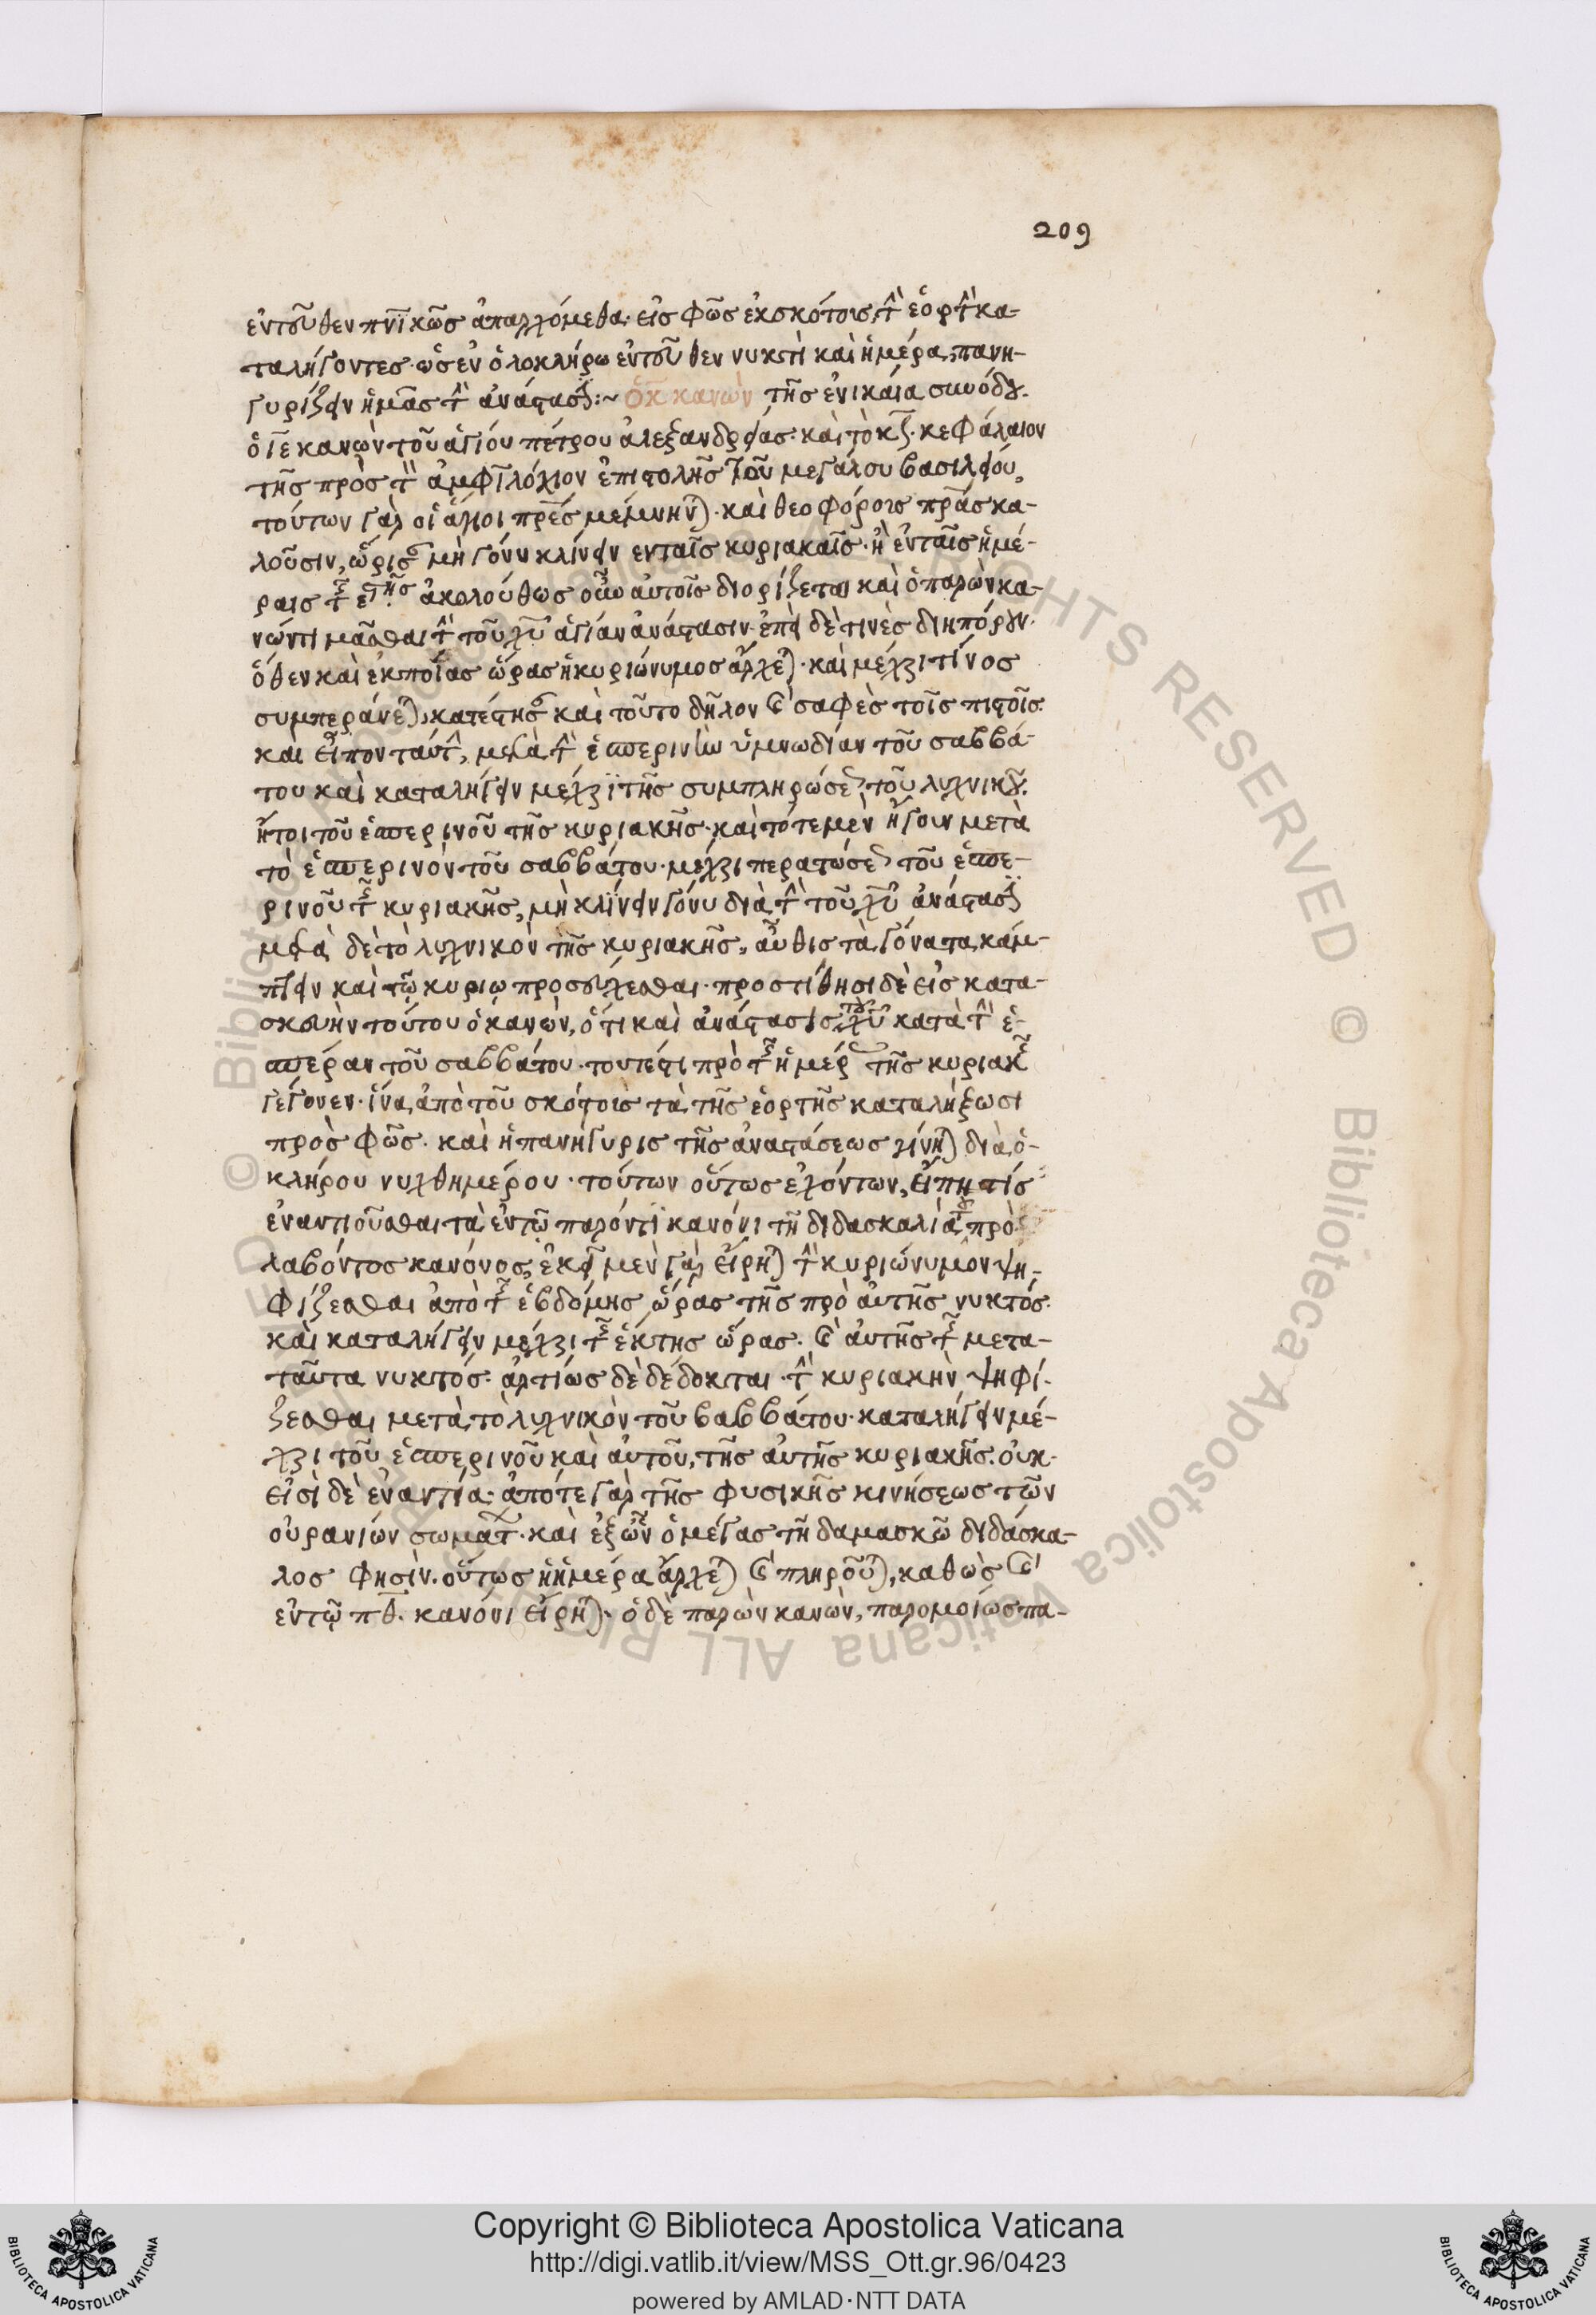 209
ἐντοῦθεν πνϊκῶς ἀπαρχόμεθα· εἰς φῶς ἐκ σκότους τὴν ἑορτὴν κα-
ταλήγοντες· ὡς ἐν ὁλοκλήρω ἐντοῦθεν νυκτὶ καὶ ἡμέρα, πανη-
γυρίζειν ἡμᾶς τὴν ἀνάστασιν:~ Ὁ κ κανὼν τῆς ἐν νικαία συνόδου.
ὁ ιε κανὼν τοῦ ἁγίου πέτρου ἀλεξανδρείας· καὶ τὸ κζ· κεφάλαιον
τῆς πρὸς τὸν ἀμφιλόχιον ἐπιστολῆς τοῦ μεγάλου βασιλείου,
τούτων γὰρ οἱ ἅγιοι πρες μέμνηνται· καὶ θεοφόρους πρας κα-
λοῦσιν, ὥρισαν μὴ γόνυ κλίνειν ἐν ταῖς κυριακαῖς· ἢ ἐν ταῖς ἡμέ-
ραις τῆς ἀκολούθως οὖν αὐτοῖς διορίζεται καὶ ὁ παρὼν κα-
νὼν τιμᾶσθαι τὴν τοῦ χυ ἁγίαν ἀνάστασιν· ἐπεὶ δὲ τινὲς διηπόρουν·
ὅθεν καὶ ἐκ ποίας ὥρας ἡ κυριώνυμος ἄρχεται· καὶ μέχρι τίνος
συμπεραίνεται, κατέστησαν καὶ τοῦτο δῆλον καὶ σαφὲς τοῖς πιστοῖς·
και εἶπον ταύτην, μετὰ τὴν ἑσπερινὴν ὑμνωδίαν τοῦ σαββά-
του καὶ καταλήγειν μέχρϊ τῆς συμπληρώσεως τοῦ λυχνικοῦ.
ἤτοι τοῦ ἑσπερινοῦ τῆς κυριακῆς· καὶ τότε μὲν ἤγουν μετὰ
τὸ ἑσπερινὸν τοῦ σαββάτου· μέχρι περατώσεως τοῦ ἑσπε-
ρινοῦ τῆς κυριακῆς, μὴ κλίνειν γόνυ διὰ τὴν τοῦ χυ ἀνάστασιν
μετὰ δὲ τὸ λυχνικὸν τῆς κυριακῆς, αὖθις τὰ γόνατα κάμ-
πτειν καὶ τῶ κυριω προσεύχεσθαι· προστίθησι δὲ εἰς κατα-
σκευὴν τούτου ὁ κανὼν, ὅτι καὶ ἀνάστασις τοῦ χυ κατὰ τὴν ἑ-
σπέραν τοῦ σαββάτου· τουτέστι πρὸ τῆς ἡμέρας τῆς κυριακῆς
γέγονεν· ἵνα ἀπὸ τοῦ σκότους τὰ τῆς ἑορτῆς καταλήξωσι
πρὸς φῶς· καὶ ἡ πανήγυρις τῆς ἀναστάσεως γίνηται διὰ ὁ-
κλήρου νυχθημέρου· τούτων οὕτως ἐχόντων, εἴπη τίς
ἐναντιοῦσθαι τὰ ἐν τῶ παρόντϊ κανόνι τῆ διδασκαλία τοῦ πρὸ
λαβόντος κανόνος, ἐκεῖ μὲν γὰρ εἴρηται τὴν κυριώνυμον ψη-
φίζεσθαι ἀπὸ τῆς ἑβδόμης ὥρας τῆς πρὸ αὐτῆς νυκτός·
καὶ καταλήγειν μέχρι τῆς ἕκτης ὥρας· καὶ αὐτῆς τῆς μετα-
ταῦτα νυκτός· ἀρτίως δὲ δέδοκται· τὴν κυριακὴν ψηφί-
ζεσθαι μετὰ τὸ λυχνικὸν τοῦ σαββάτου· καταλήγειν μέ-
χρι τοῦ ἑσπερινοῦ καὶ αὐτοῦ, τῆς αὐτῆς κυριακῆς. οὐκ
εἰσὶ δὲ ἐναντία· ἀπότε γὰρ τῆς φυσικῆς κινήσεως τῶν
οὐρανιών σωμάτων· καὶ ἐξ ὧν ὁ μέγας τῆ δαμασκῶ διδάσκα-
λος φησὶν. οὕτως ἡ ἡμέρα ἄρχεται καὶ πληροῦται, καθὼς καὶ
ἐν τῶ πθ. κανόνι εἴρηται· ὁ δὲ παρὼν κανὼν, παρομοίως πα-
Copyright © Biblioteca Apostolica Vaticana
http://digi.vatlib.it/view/MSS_Ott.gr.96/0423
powered by AMLAD·NTT DATA